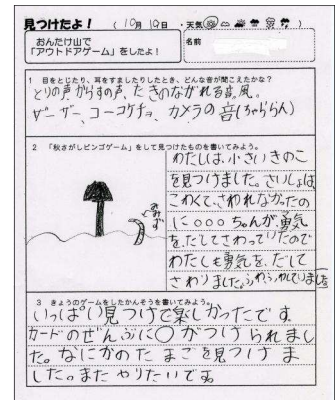 見つけたよ！ （10月19日 ・天気 ）
おんたけ山で
「アウトドアゲーム」をしたよ！
名前
1 目をとじたり、耳をすましたりしたとき、どんな音が聞こえたかな？
とりの声がらすの声、たきのながれる音、風。
ザーザー、コーコケチョ、カメラの音(ちゃららん)
2 「秋さがしビンゴゲーム」をして見つけたものを書いてみよう。
みみず
わたしは、小さいきのこ
を見つけました。さいしょは
こわくて、さわれなかったの
に○○○ちゃんが、勇気
を、だしてさわっていたので
わたしも勇気を、だして
さわりました。ふわふわしていました
3 きょうのゲームをしたかんそうを書いてみよう。
いっぱい見つけて楽しかったです
カードのぜんぶに○がつけられまし
た。なにかのたまごを見つけま
した。またやりたいです。